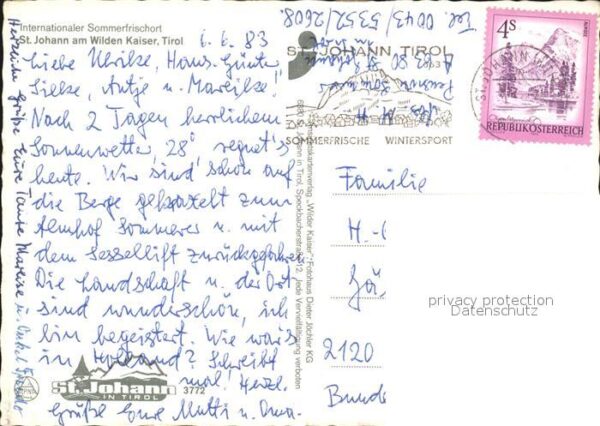 Internationaler Sommerfrischort
St. Johann am Wilden Kaiser, Tirol
6. 6. 83
Liebe Ulrike, Hans-Günter,
Silke, Antje u. Mareike!
Nach 2 Tagen herrlichem
Sonnenwetter 28° regnet's
heute. Wir sind schon auf
die Berge gekraxelt zum
Almhof Sommerer u. mit
dem Sessellift zurückgefahren
Die Landschaft u. der Ort
sind wunderschön, ich
bin begeistert. Wie war's
in Holland? Schreibt
mal! Herzl.
Grüße Eure Mutti u. Oma.
Herzliche Grüße Eure Tante Marlise u. Onkel
Tel. 0043/5352/2608
Pension
ST. JOHANN TIROL
SOMMERFRISCHE WINTERSPORT
4S
REPUBLIK ÖSTERREICH
Ansichtskartenverlag „Wilder Kaiser“ Fotohaus Dieter Jöchler KG
6380 St. Johann in Tirol, Speckbacherstraße 12. Jede Vervielfältigung verboten
St. Johann
IN TIROL
3772
Familie
H.-
2120
privacy protection
Datenschutz